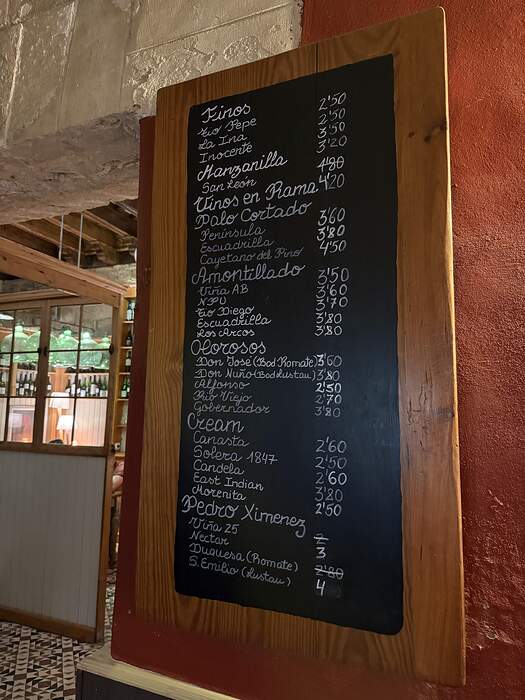 Finos 2'50
Tio Pepe 2'50
La Ina 3'50
Inocente 3'20
Manzanilla
San León 4'80
Vinos en Rama 4'20
Palo Cortado
Península 3'60
Escuadrilla 3'80
Cayetano del Pino 4'50
Amontillado
Viña AB 3'50
NPU 3'60
Tio Diego 3'70
Escuadrilla 3'80
Los Arcos 3'80
Olorosos
Don José (Bod Romate) 3'60
Don Nuño (Bod Lustau) 3'80
Alfonso 2'50
Rio Viejo 2'70
Gobernador 3'80
Cream
Canasta 2'60
Solera 1847 2'50
Candela 2'60
East Indian 3'80
Morenita 2'50
Pedro Ximenez
Viña 25 2
Nectar 3
Duquesa (Romate) 2'80
S. Emilio (Lustau) 4